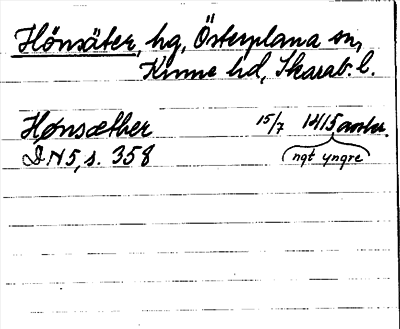 Hönsäter, hg, Österplana sn,
Kinne hd, Skarab. l.
Hønsæther 15/7 1415 avskr.
DN 5, s. 358 (ngt yngre)